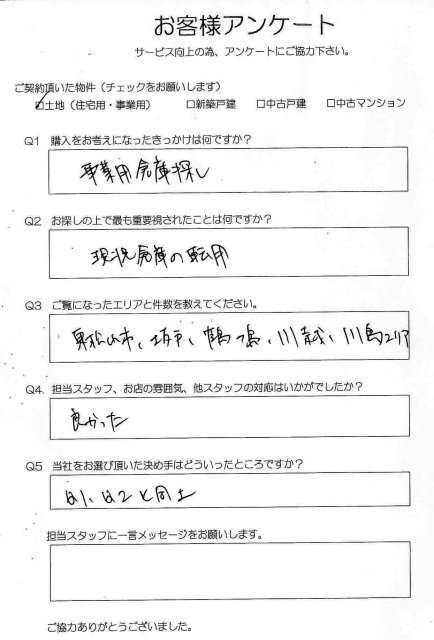 お客様アンケート
サービス向上の為、アンケートにご協力下さい。
ご契約頂いた物件（チェックをお願いします）
☑土地（住宅用・事業用） □新築戸建 □中古戸建 □中古マンション
Q1 購入をお考えになったきっかけは何ですか？
事業用倉庫探し
Q2 お探しの上で最も重要視されたことは何ですか？
現況倉庫の転用
Q3 ご覧になったエリアと件数を教えてください。
東松山市、坂戸、鶴ヶ島、川越、川島エリア
Q4 担当スタッフ、お店の雰囲気、他スタッフの対応はいかがでしたか？
良かった
Q5 当社をお選び頂いた決め手はどういったところですか？
Q1、Q2と同上
担当スタッフに一言メッセージをお願いします。
ご協力ありがとうございました。